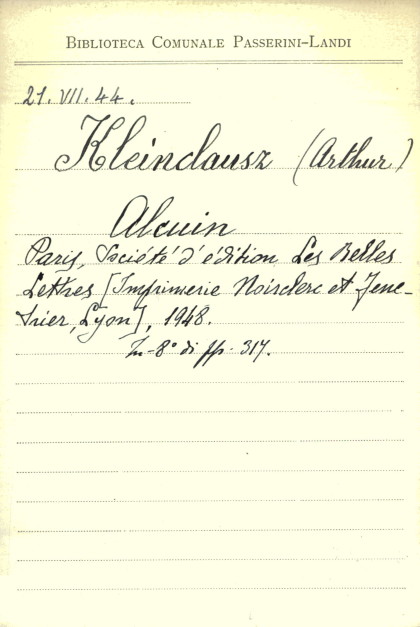 BIBLIOTECA COMUNALE PASSERINI-LANDI
21. VII. 44.
Kleinclausz (Arthur)
Alcuin
Paris, Société d'édition Les Belles
Lettres [Imprimerie Noirclerc et Fene-
trier, Lyon], 1948.
In-8° di pp. 317.